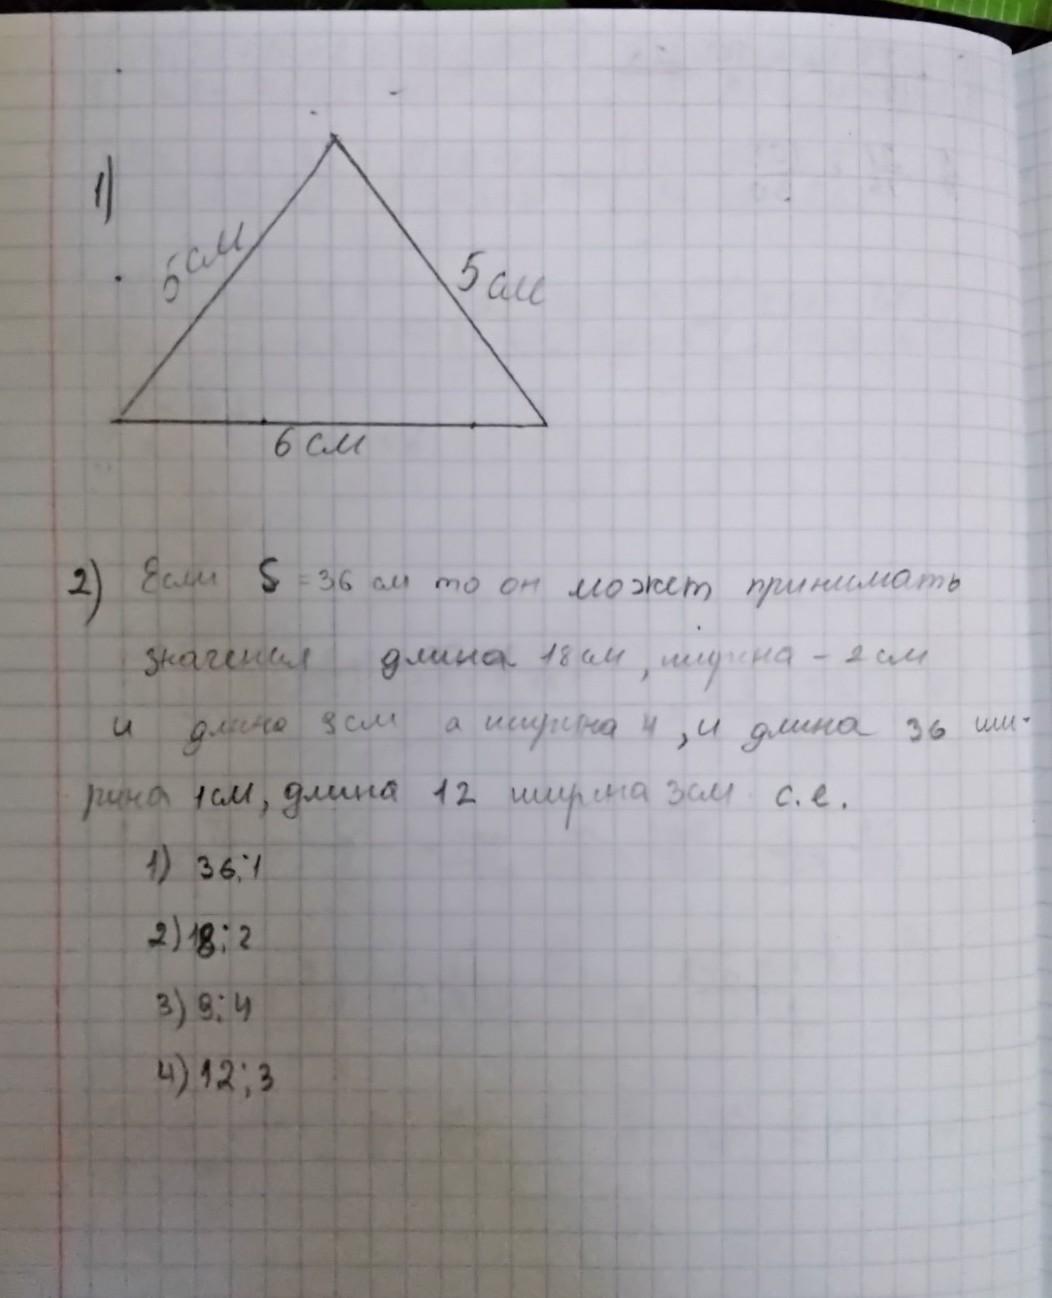 1)
5 см
5 см
6 см
2) Если S = 36 см то он может принимать
значения длина 18 см, ширина - 2 см
и длина 9 см а ширина 4, и длина 36 ши-
рина 1 см, длина 12 ширина 3 см с.е.
1) 36; 1
2) 18; 2
3) 9; 4
4) 12; 3